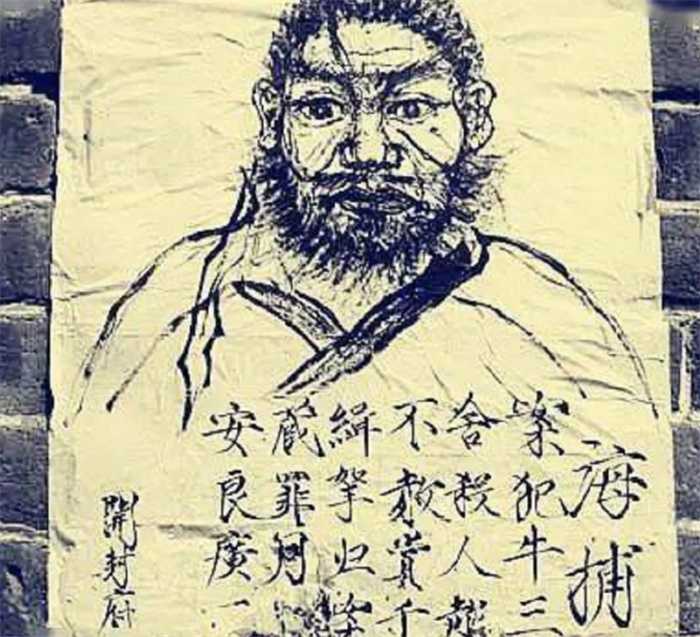 海捕
案犯牛二
舍殺人越
不赦賞千
緝拏归案
藏罪同
安良廣一
開封府